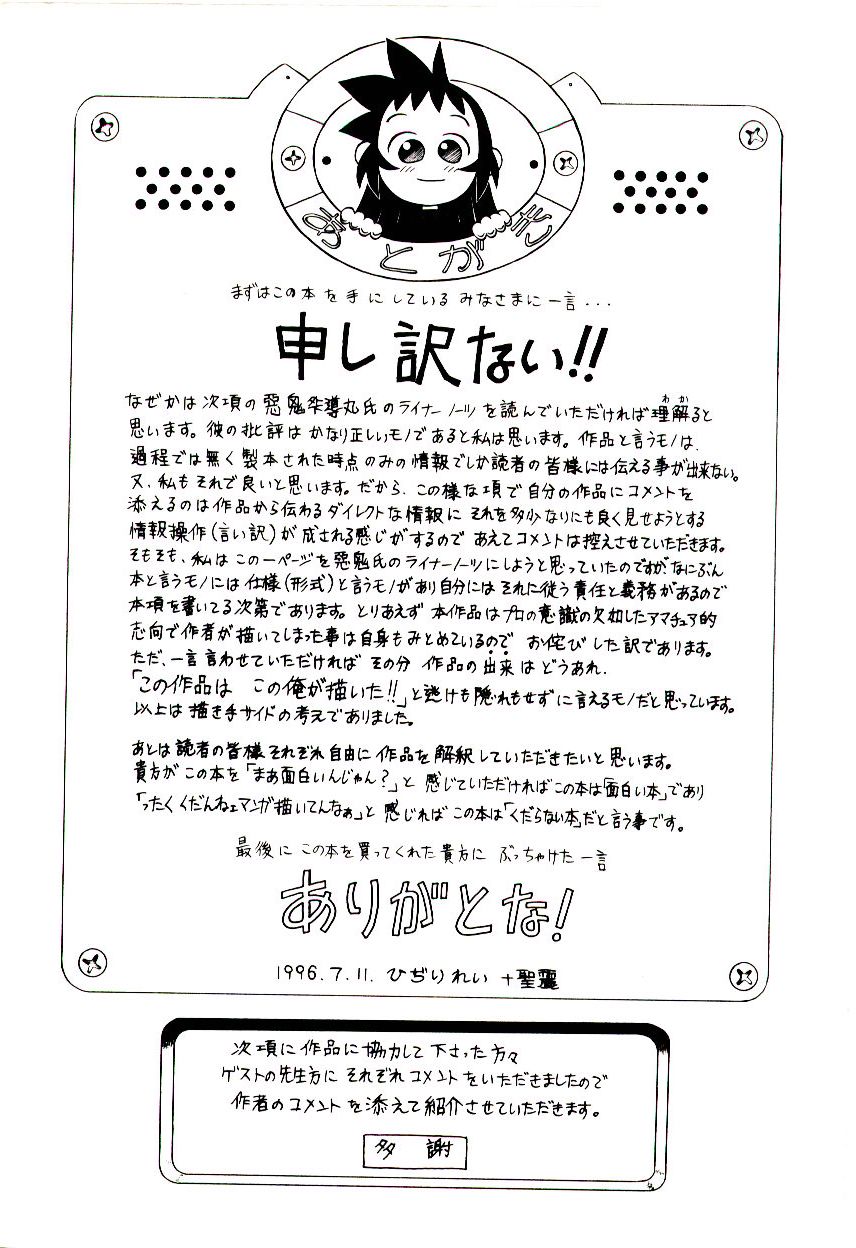 あとがき
まずはこの本を手にしているみなさまに一言...
申し訳ない!!
なぜかは次項の惡鬼羊導丸氏のライナーノーツを読んでいただければ理解ると
わか
思います。彼の批評はかなり正しいモノであると私は思います。作品と言うモノは、
過程では無く製本された時点のみの情報でしか読者の皆様には伝える事が出来ない。
又、私もそれで良いと思います。だから、この様な項で自分の作品にコメントを
添えるのは作品から伝わるダイレクトな情報にそれを多少なりにも良く見せようとする
情報操作(言い訳)が成される感じがするのであえてコメントは控えさせていただきます。
そもそも、私はこの一ページを惡鬼氏のライナーノーツにしようと思っていたのですがなにぶん
本と言うモノには仕様(形式)と言うモノがあり自分にはそれに従う責任と義務があるので
本項を書いてる次第であります。とりあえず本作品はプロの意識の欠如したアマチュア的
志向で作者が描いてしまった事は自身もみとめているのでお侘びした訳であります。
ただ、一言言わせていただければその分作品の出来はどうあれ、
「この作品は この俺が描いた!!」と逃げも隠れもせずに言えるモノだと思っています。
以上は描き手サイドの考えでありました。
あとは読者の皆様それぞれ自由に作品を解釈していただきたいと思います。
貴方がこの本を「まあ面白いんじゃん?」と感じていただければこの本は「面白い本」であり
「ったくくだんねェマンガ描いてんなぁ」と感じればこの本は「くだらない本」だと言う事です。
最後にこの本を買ってくれた貴方にぶっちゃけた一言
ありがとな!
1996.7.11. ひぢりれい +聖麗
次項に作品に協力して下さった方々
ゲストの先生方にそれぞれコメントをいただきましたので
作者のコメントを添えて紹介させていただきます。
多 謝